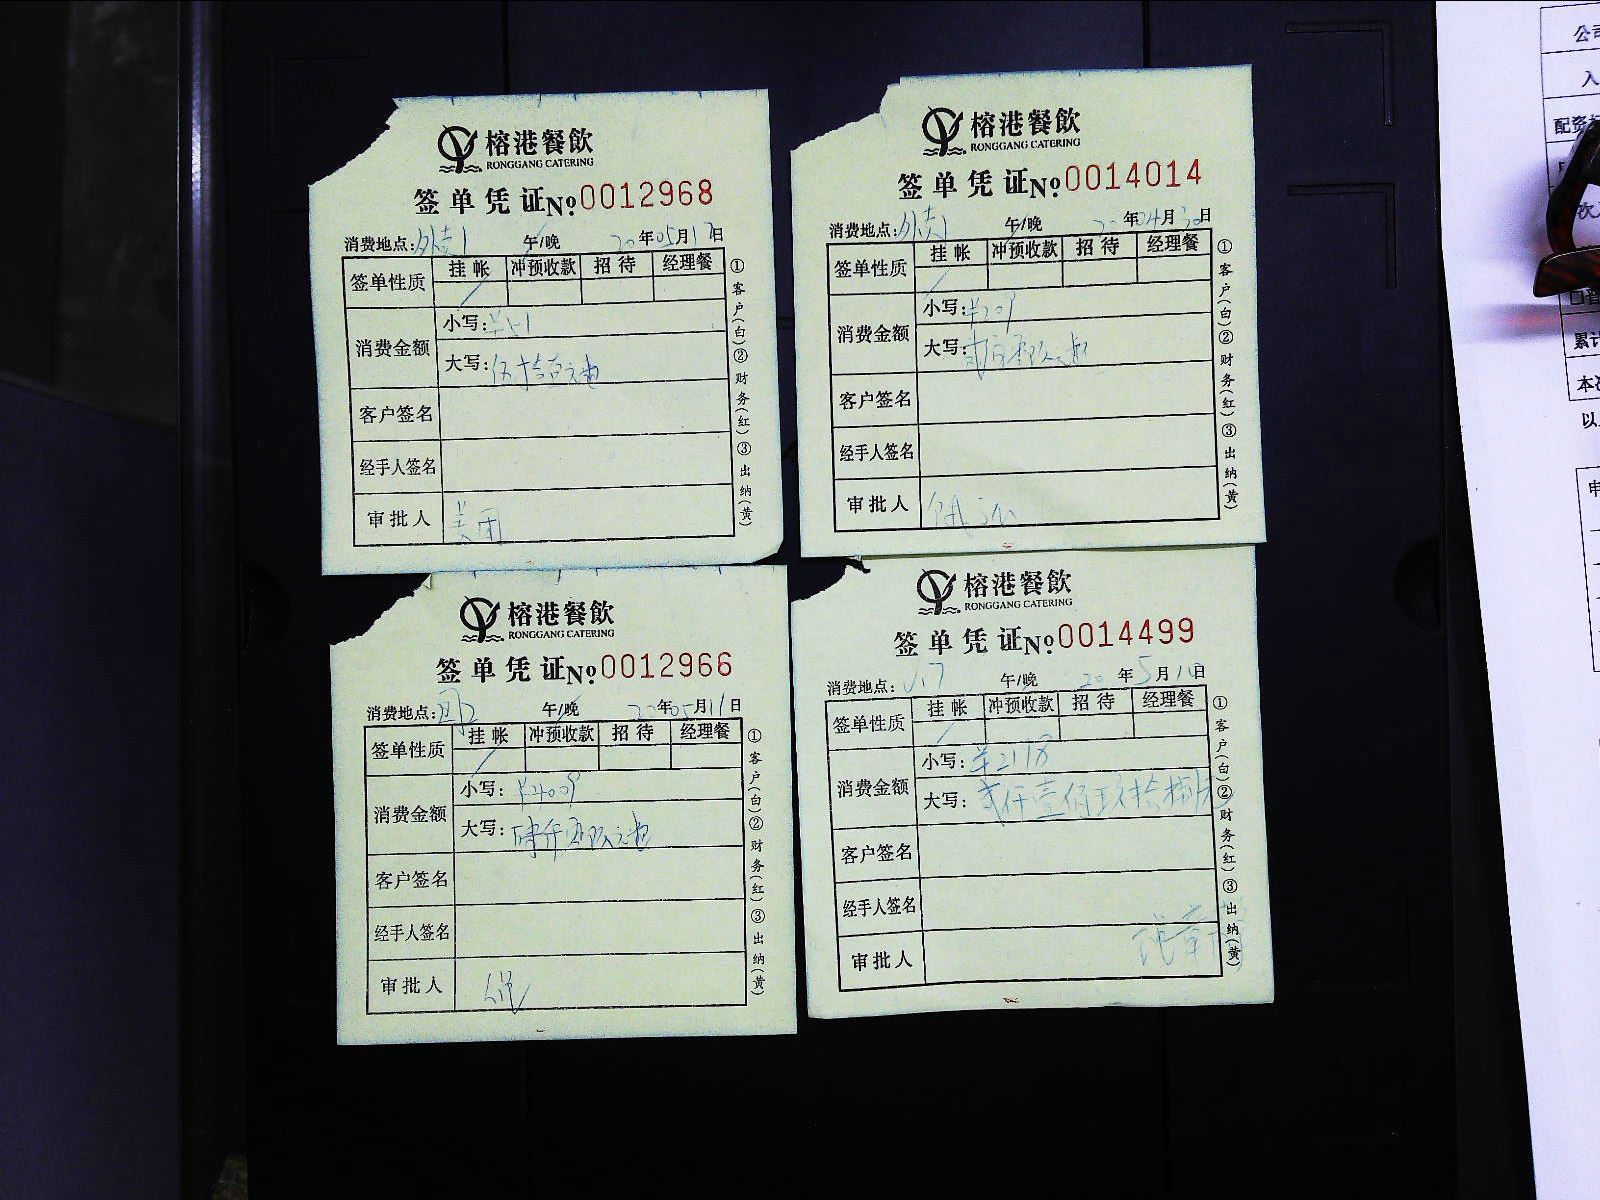 榕港餐飲
RONGGANG CATERING
签单凭证 No 0012968
消费地点: 外卖1 午/晚 20年05月17日
签单性质 挂帐 冲预收款 招待 经理餐
消费金额 小写: ¥51
大写: 伍拾壹元整
客户签名
经手人签名
审批人 美团
①客户(白)②财务(红)③出纳(黄)
榕港餐飲
RONGGANG CATERING
签单凭证 No 0014014
消费地点: 外卖1 午/晚 20年04月30日
签单性质 挂帐 冲预收款 招待 经理餐
消费金额 小写: ¥209
大写: 贰佰零玖元整
客户签名
经手人签名
审批人
①客户(白)②财务(红)③出纳(黄)
榕港餐飲
RONGGANG CATERING
签单凭证 No 0012966
消费地点: 午/晚 20年05月11日
签单性质 挂帐 冲预收款 招待 经理餐
消费金额 小写: ¥4009
大写: 肆仟零玖元整
客户签名
经手人签名
审批人
①客户(白)②财务(红)③出纳(黄)
榕港餐飲
RONGGANG CATERING
签单凭证 No 0014499
消费地点: 午/晚 20年5月日
签单性质 挂帐 冲预收款 招待 经理餐
消费金额 小写:
大写: 贰仟壹佰玖拾捌元
客户签名
经手人签名
审批人
①客户(白)②财务(红)③出纳(黄)
公司
入
配资
次
累计
本次
以
申